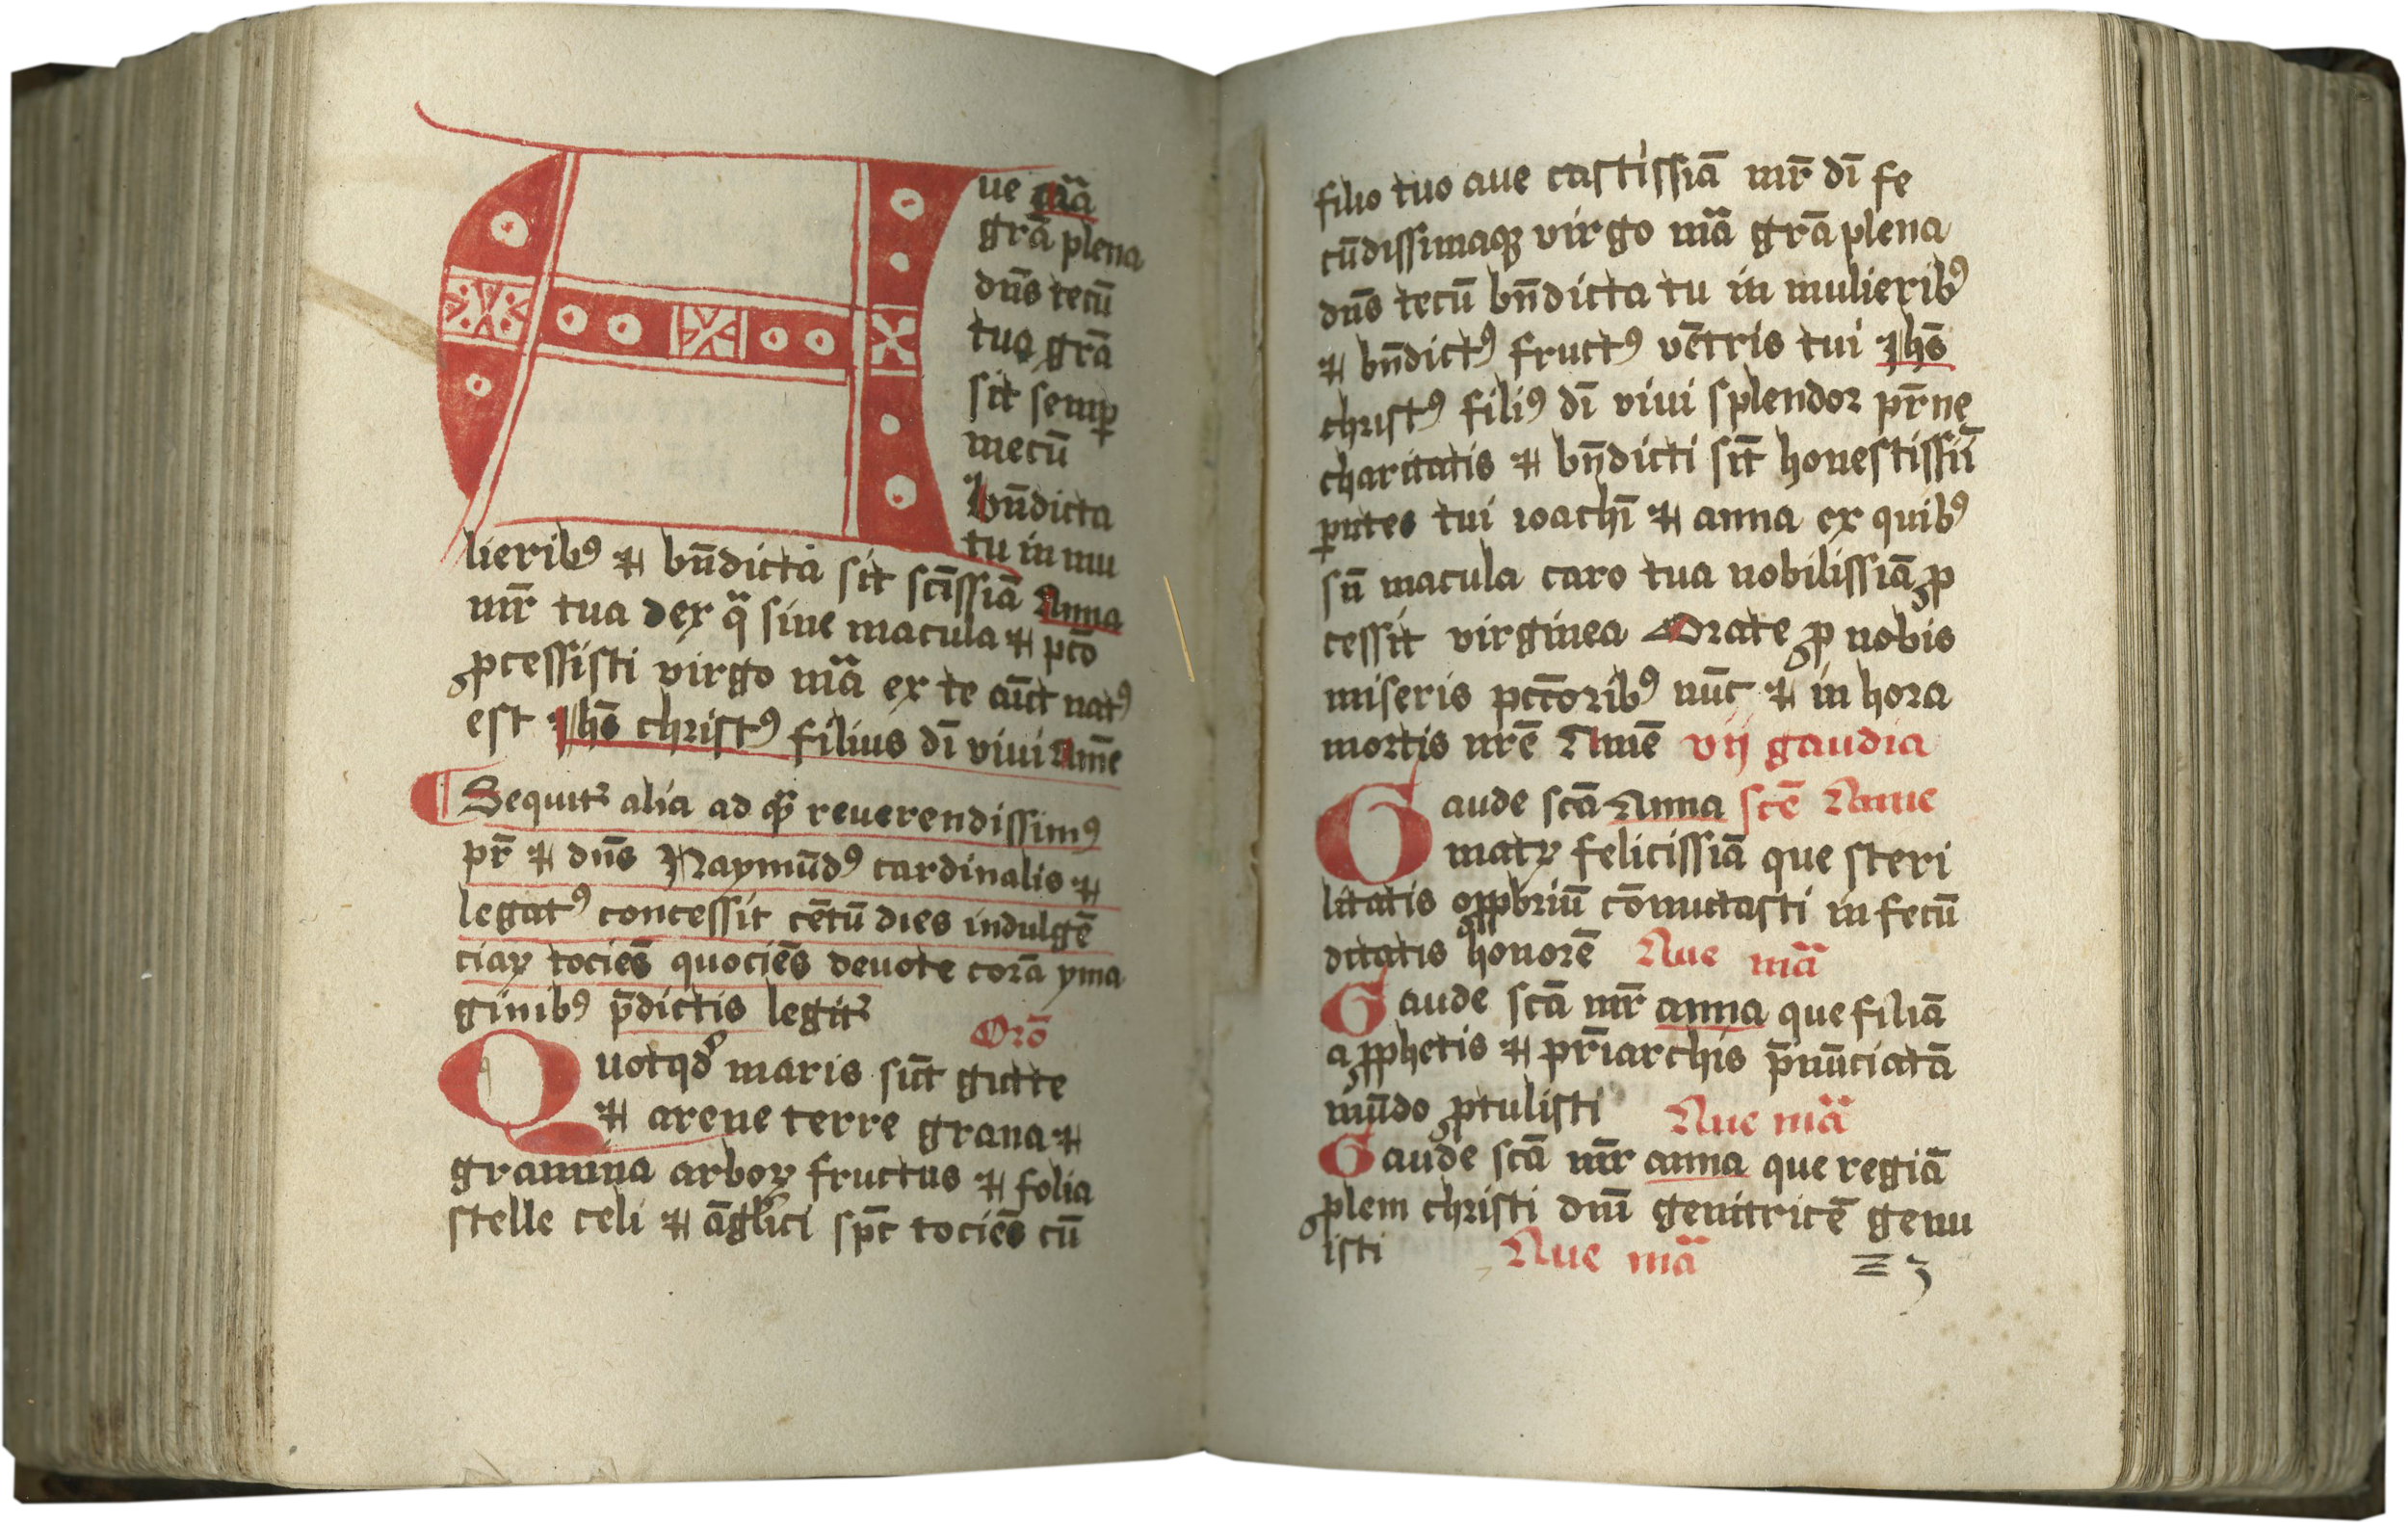 Aue mã̈a
grã plena
dñs tecũ
tua grã
sit semꝑ
mecũ
bñdicta
tu in mu
lieribꝰ ⁊ bñdicta sit scĩssiã Anna
mr̃ tua dex qͣ sine macula ⁊ pctõ
ꝓcessisti virgo mã̈a ex te aũt natꝰ
est Jhs̃ christꝰ filius dĩ viui Amẽ
Sequitᷣ alia ad quã reuerendissimꝰ
pr̃ ⁊ dñs Raymũdꝰ cardinalis ⁊
legatꝰ concessit cẽtũ dies indulgẽ
ciaꝝ tociẽs quociẽs deuote corã yma
ginibꝰ p̃dictis legitᷣ
Orõ
Quotqđ maris sũt gutte
⁊ arene terre grana ⁊
gramina arboꝝ fructus ⁊ folia
stelle celi ⁊ ãglici sp̃c tociẽs cũ
filio tuo aue castissiã mr̃ dĩ fe
cũdissimaqꝫ virgo mã̈a grã plena
dñs tecũ bñdicta tu in mulieribꝰ
⁊ bñdictꝰ fructꝰ vẽtris tui Jhs̃
christꝰ filiꝰ dĩ viui splendor pr̃ne
charitatis ⁊ bñdicti sĩt honestissiĩ
ꝑntes tui ioachĩ ⁊ anna ex quibꝰ
sñ macula caro tua nobilissiã ꝓ
cessit virginea Orate ꝓ nobis
miseris pctõribꝰ nũc ⁊ in hora
mortis nrẽ Amẽ vij gaudia
Gaude scã Anna scẽ Anne
matꝝ felicissiã que steri
litatis opꝓbriũ cõmutasti in fecũ
ditatis honorẽ Aue mã̈a
Gaude scã mr̃ anna que filiã
a ꝓphetis ⁊ pr̃iarchis p̃nũciatã
mũdo ꝓtulisti Aue mã̈a
Gaude scã mr̃ anna que regiã
ꝓlem christi dnĩ genitricẽ genu
isti Aue mã̈a